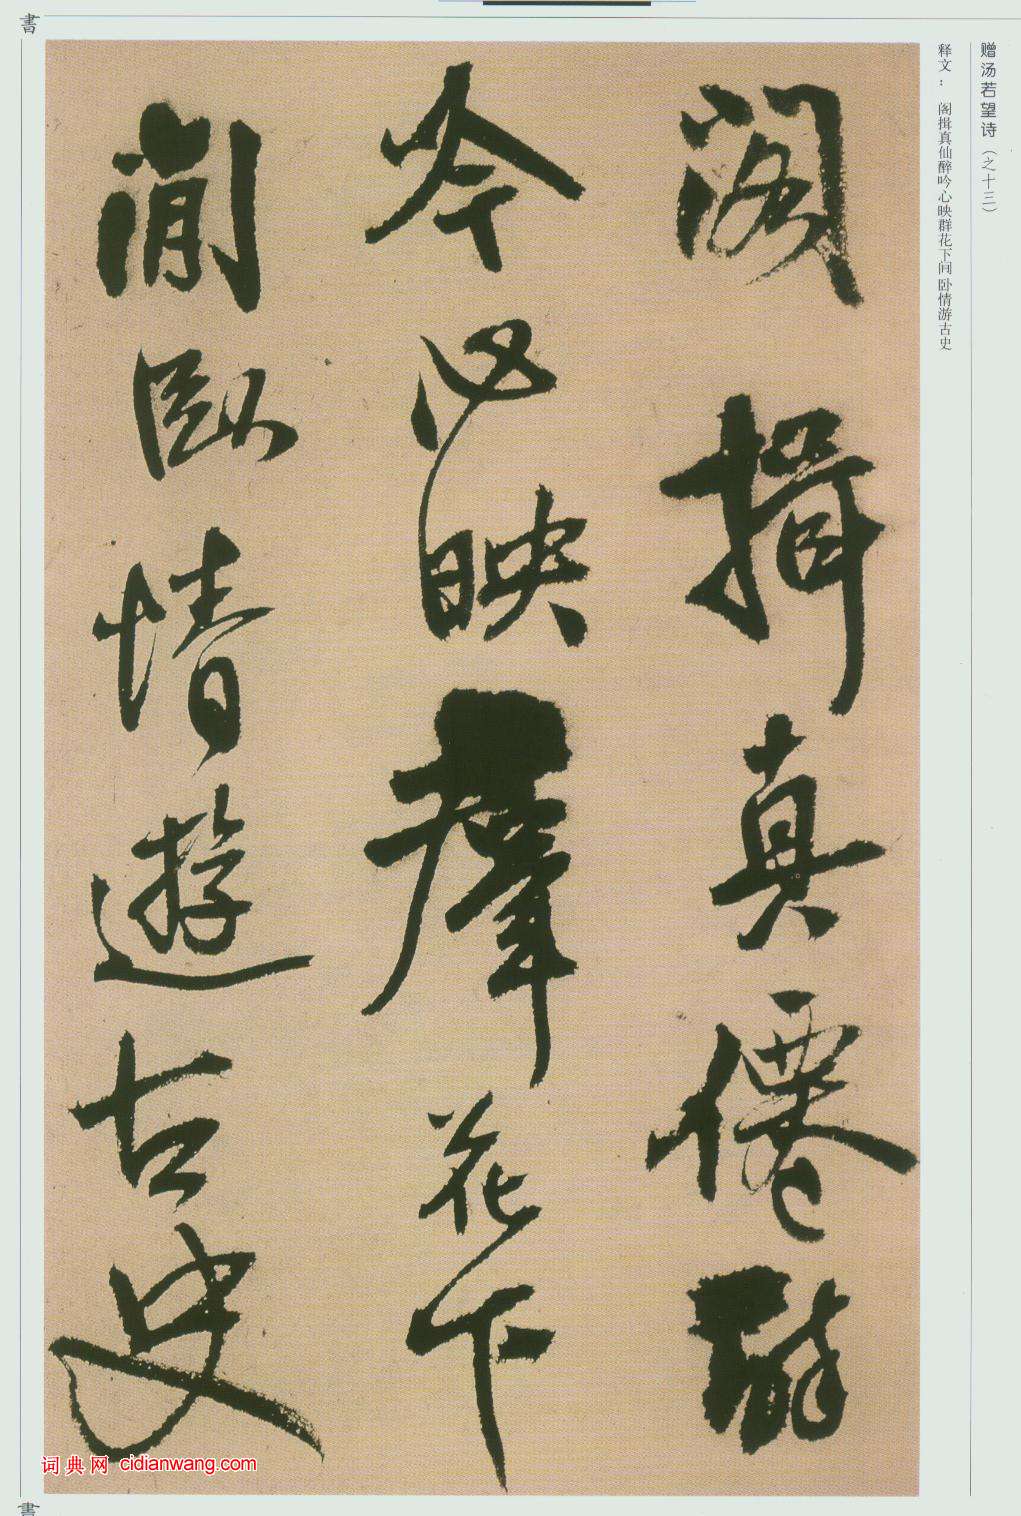 赠汤若望诗(之十三)
释文： 阁揖真仙醉吟心映群花下间卧情游古史
阁揖真僊醉
吟心映群花下
閒卧情遊古史
書
書
词典网 cidianwang.com